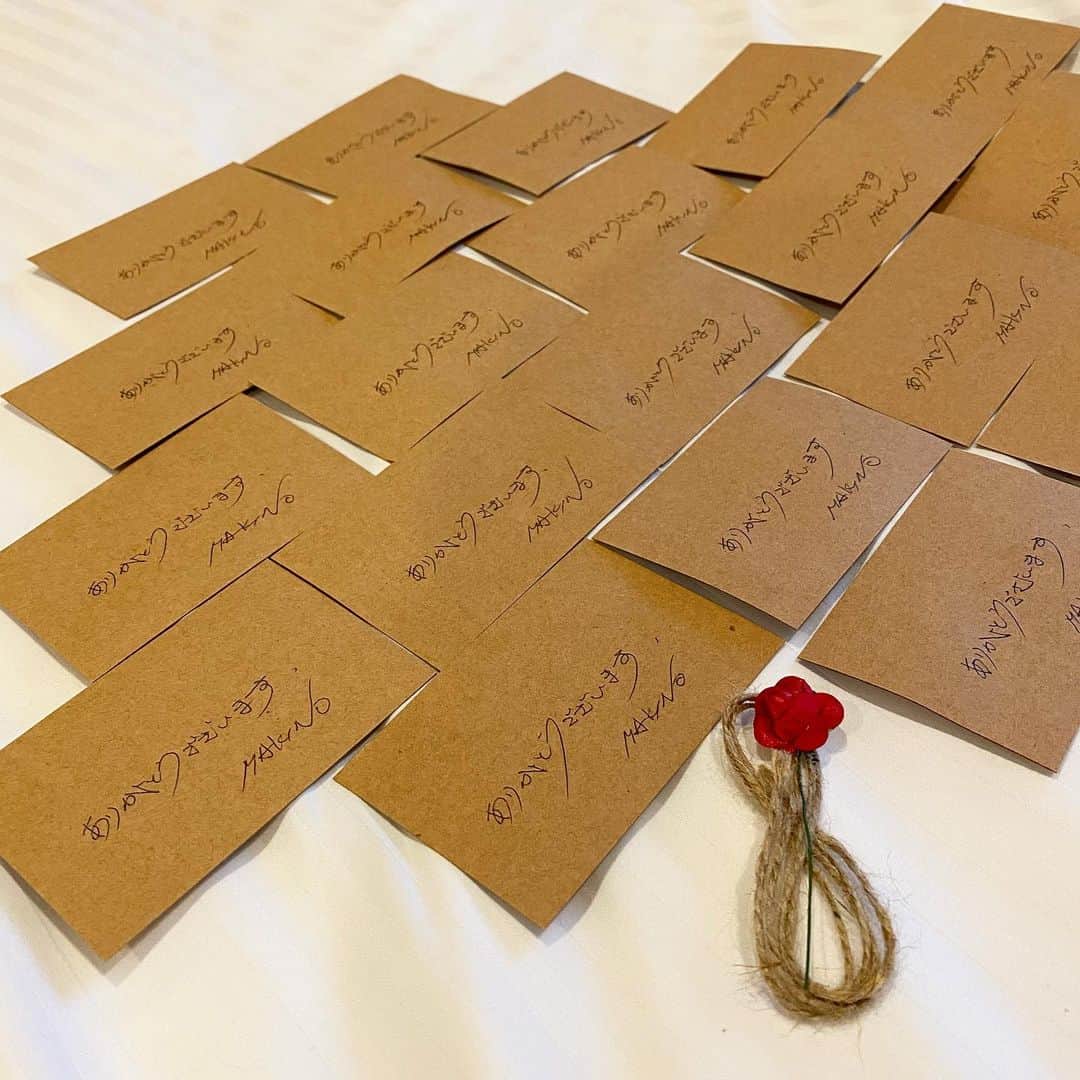 ありがとうございます
MAKINO
ありがとうございます
MAKINO
ありがとうございます
MAKINO
ありがとうございます
MAKINO
ありがとうございます
MAKINO
ありがとうございます
MAKINO
ありがとうございます
MAKINO
ありがとうございます
MAKINO
ありがとうござ
ありがとうございます
MAKINO
ありがとうございます
MAKINO
ありがとうございます
MAKINO
ありがとうございます
MAKINO
ありがとうございます
MAKINO
ありがとうございます
MAKINO
ありがとうございます
MAKINO
ありがとうございます
MA
ありがとうございます
MAKINO
ありがとうございます
MAKINO